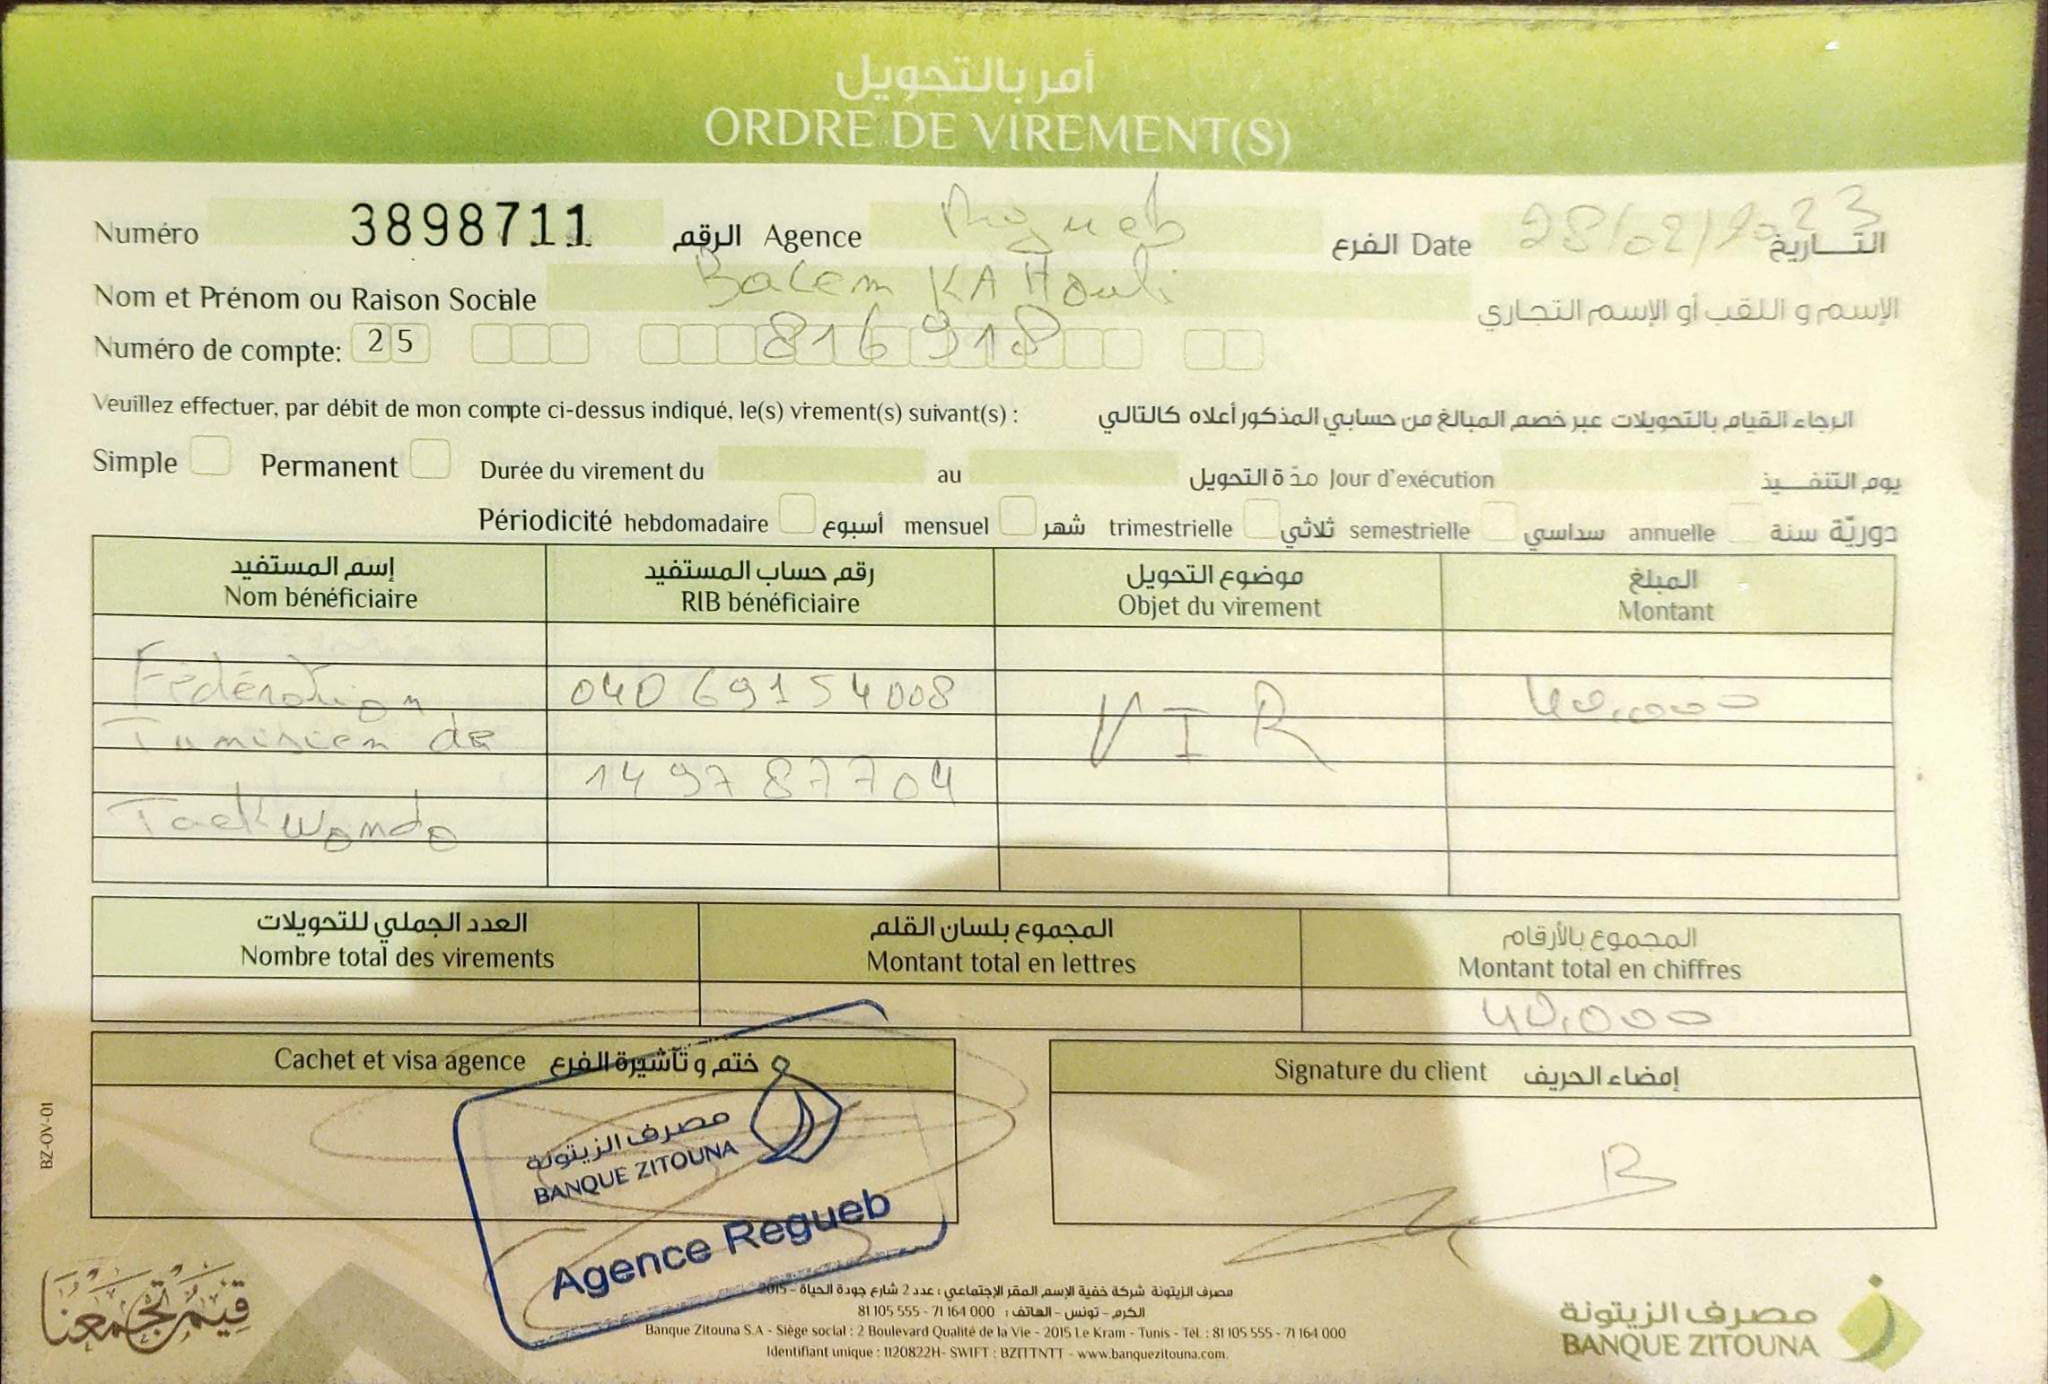 أمر بالتحويل
ORDRE DE VIREMENT(S)
Numéro 3898711 الرقم Agence Regueb الفرع Date 28/02/2023 التـــاريخ
Nom et Prénom ou Raison Sociale Balem KAHouli الإسم و اللقب أو الإسم التجاري
Numéro de compte: 25 816918
Veuillez effectuer, par débit de mon compte ci-dessus indiqué, le(s) virement(s) suivant(s) : الرجاء القيام بالتحويلات عبر خصم المبالغ من حسابي المذكور أعلاه كالتالي
Simple Permanent Durée du virement du au مدّة التحويل Jour d'exécution يوم التنفـــيذ
Périodicité hebdomadaire أسبوع mensuel شهر trimestrielle ثلاثي semestrielle سداسي annuelle دوريّة سنة
إسم المستفيد رقم حساب المستفيد موضوع التحويل المبلغ
Nom bénéficiaire RIB bénéficiaire Objet du virement Montant
Fédération 040 69154008 VIR 40.000
Tunisien de
149787704
Taekwondo
العدد الجملي للتحويلات المجموع بلسان القلم المجموع بالأرقام
Nombre total des virements Montant total en lettres Montant total en chiffres
40.000
Cachet et visa agence ختم و تأشيرة الفرع Signature du client إمضاء الحريف
مصرف الزيتونة
BANQUE ZITOUNA
Agence Regueb
BZ-OV-01
قيم تجمعنا
مصرف الزيتونة شركة خفية الإسم المقر الإجتماعي : عدد 2 شارع جودة الحياة - 2015
الكرم - تونس - الهاتف : 000 164 71 - 555 105 81
Banque Zitouna S.A - Siège social : 2 Boulevard Qualité de la Vie - 2015 Le Kram - Tunis - Tél. : 81 105 555 - 71 164 000
Identifiant unique : 1120822H- SWIFT : BZITTNTT - www.banquezitouna.com.
مصرف الزيتونة
BANQUE ZITOUNA